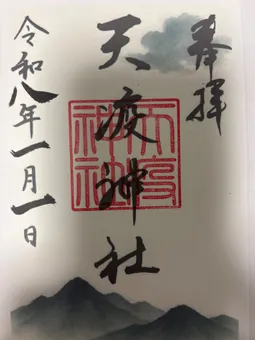 奉拝
天渡神社
令和八年一月一日
天渡神社